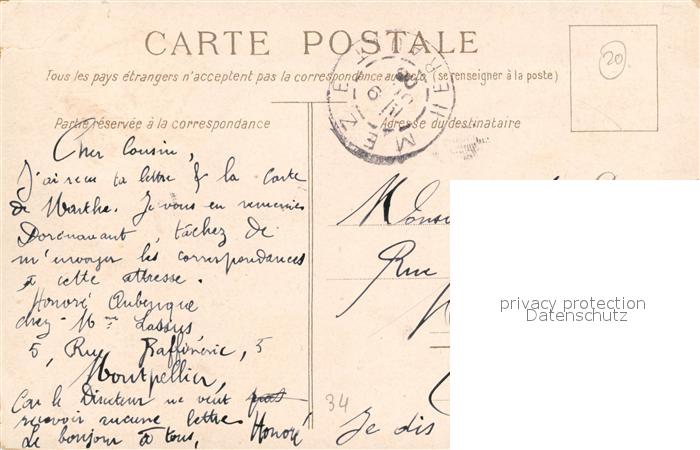 CARTE POSTALE
Tous les pays étrangers n'acceptent pas la correspondance au recto (se renseigner à la poste)
Partie réservée à la correspondance
Adresse du destinataire
20
Cher Cousin,
J'ai reçu ta lettre & la carte
de Marthe. Je vous en remercie
Dorénavant, tâchez de
m'envoyer les correspondances
à cette adresse.
Honoré Aubenque
chez Mme Lassus
5, Rue Raffinerie, 5
Montpellier,
Car le Directeur ne veut
recevoir aucune lettre
Le bonjour à tous, Honoré
Rue
34
Je dis
privacy protection
Datenschutz